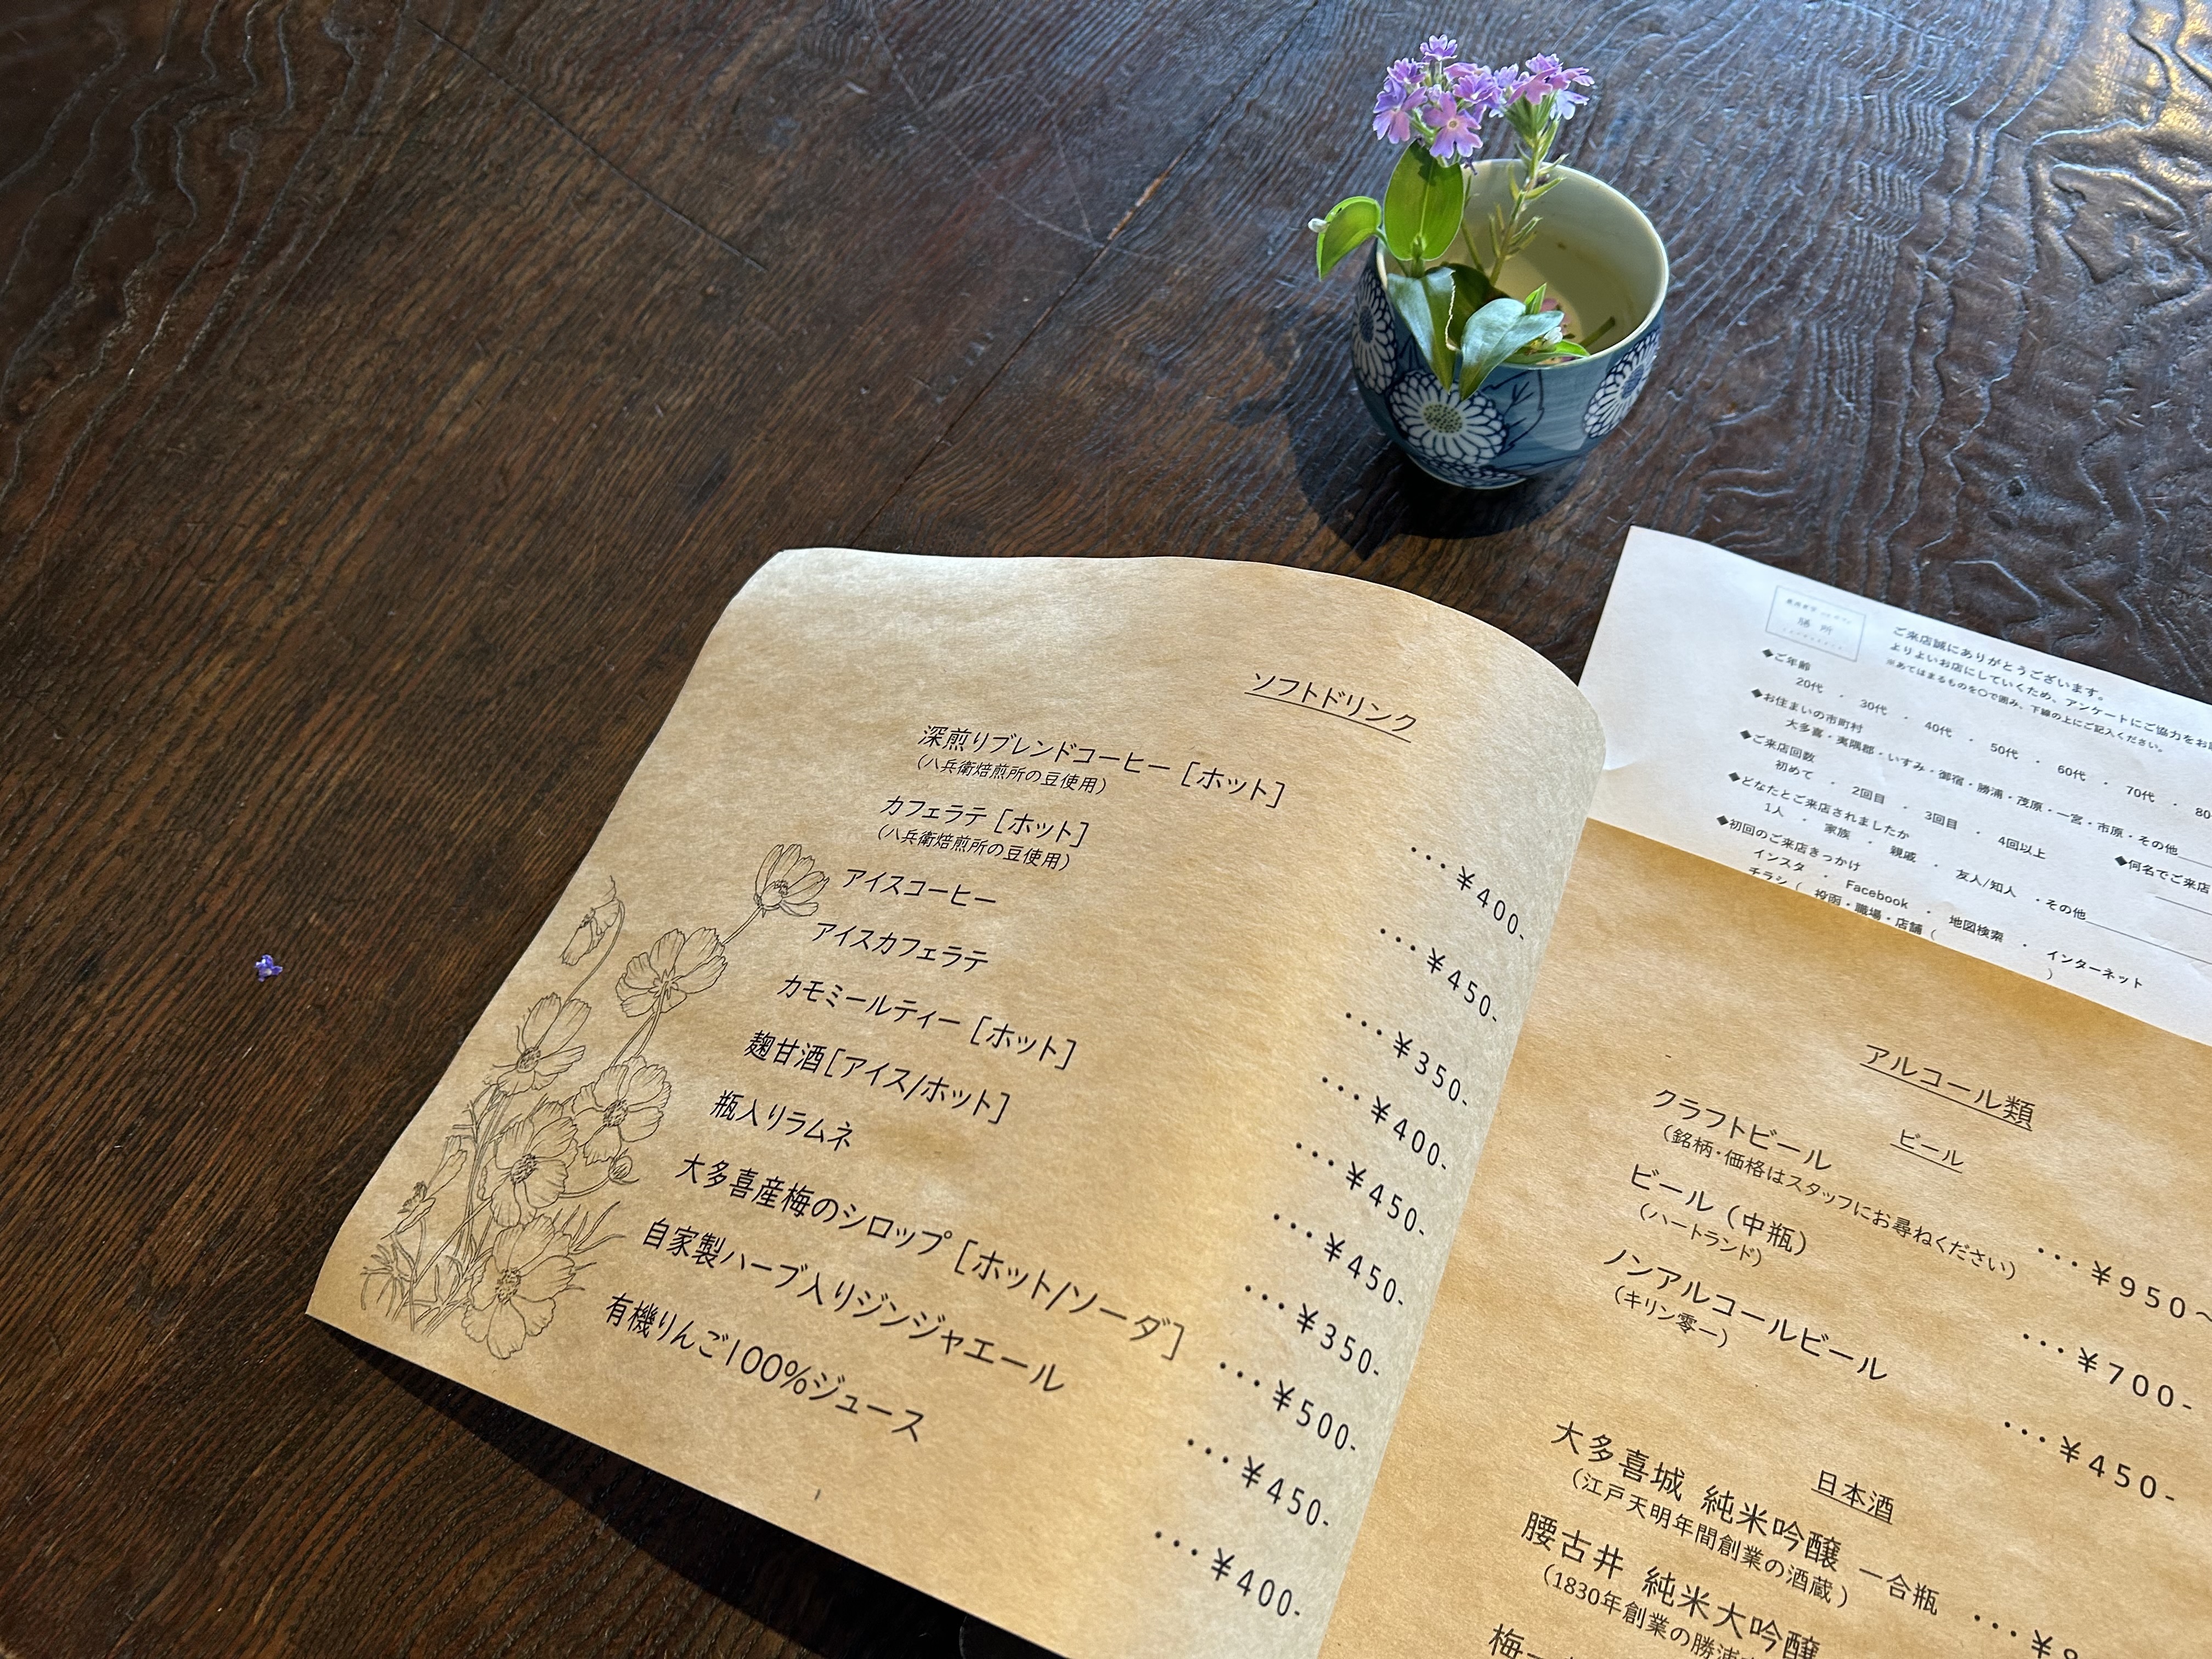 ソフトドリンク
深煎りブレンドコーヒー［ホット］ ・・・¥400-
（八兵衛焙煎所の豆使用）
カフェラテ［ホット］ ・・・¥450-
（八兵衛焙煎所の豆使用）
アイスコーヒー ・・・¥350-
アイスカフェラテ ・・・¥400-
カモミールティー［ホット］ ・・・¥450-
麹甘酒［アイス/ホット］ ・・・¥450-
瓶入りラムネ ・・・¥350-
大多喜産梅のシロップ［ホット/ソーダ］ ・・・¥500-
自家製ハーブ入りジンジャエール ・・・¥450-
有機りんご100%ジュース ・・・¥400-
膳所
ご来店誠にありがとうございます。
よりよいお店にしていくため、アンケートにご協力をお
※あてはまるものを○で囲み、下線の上にご記入ください。
◆ご年齢
20代 ・ 30代 ・ 40代 ・ 50代 ・ 60代 ・ 70代 ・ 80
◆お住まいの市町村
大多喜・夷隅郡・いすみ・御宿・勝浦・茂原・一宮・市原・その他
◆ご来店回数
初めて ・ 2回目 ・ 3回目 ・ 4回以上
◆どなたとご来店されましたか ◆何名でご来店
1人 ・ 家族 ・ 親戚 ・ 友人/知人 ・その他
◆初回のご来店きっかけ
インスタ ・ Facebook ・ 地図検索 ・ インターネット
チラシ（ 投函・職場・店舗（ ）
アルコール類
ビール
クラフトビール ・・・¥950~
（銘柄・価格はスタッフにお尋ねください）
ビール（中瓶） ・・・¥700-
（ハートランド）
ノンアルコールビール ・・・¥450-
（キリン零一）
日本酒
大多喜城 純米吟醸 一合瓶 ・・・¥
（江戸天明年間創業の酒蔵）
腰古井 純米大吟醸
（1830年創業の勝浦
梅